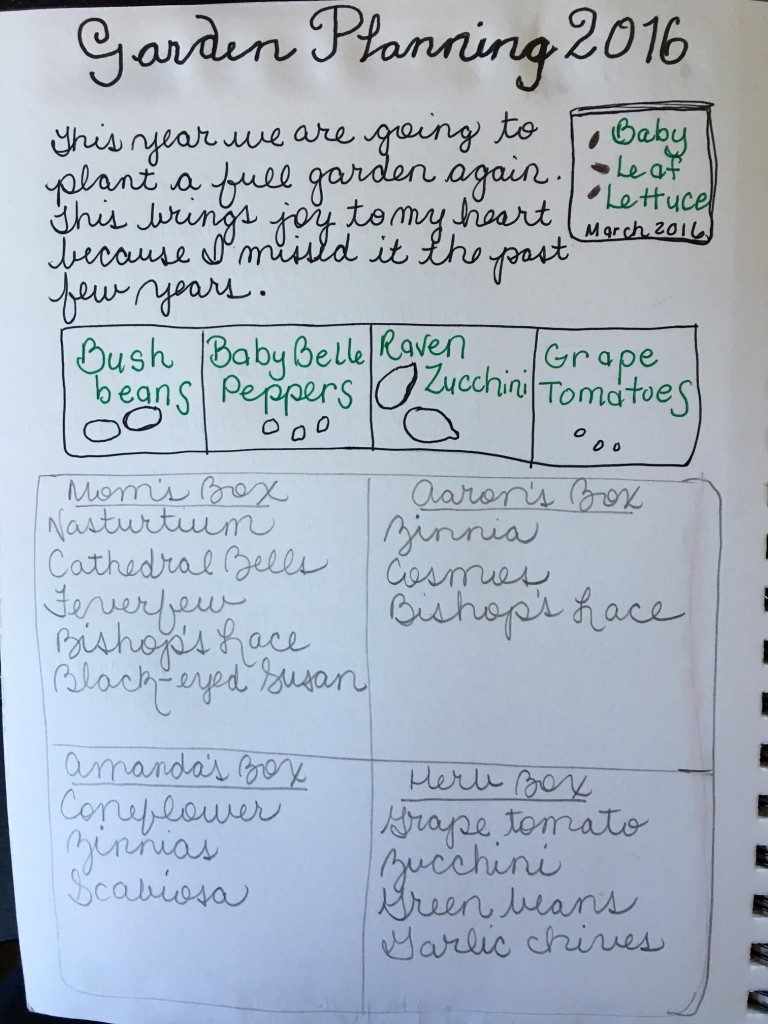 Garden Planning 2016
This year we are going to
plant a full garden again.
This brings joy to my heart
because I missed it the past
few years.
Baby
Leaf
Lettuce
March 2016
Bush
beans
Baby Belle
Peppers
Raven
Zucchini
Grape
Tomatoes
Mom's Box
Nasturtium
Cathedral Bells
Feverfew
Bishop's Lace
Black-eyed Susan
Aaron's Box
Zinnia
Cosmos
Bishop's Lace
Amanda's Box
Coneflower
Zinnias
Scabiosa
Herb Box
Grape tomato
Zucchini
Green beans
Garlic chives